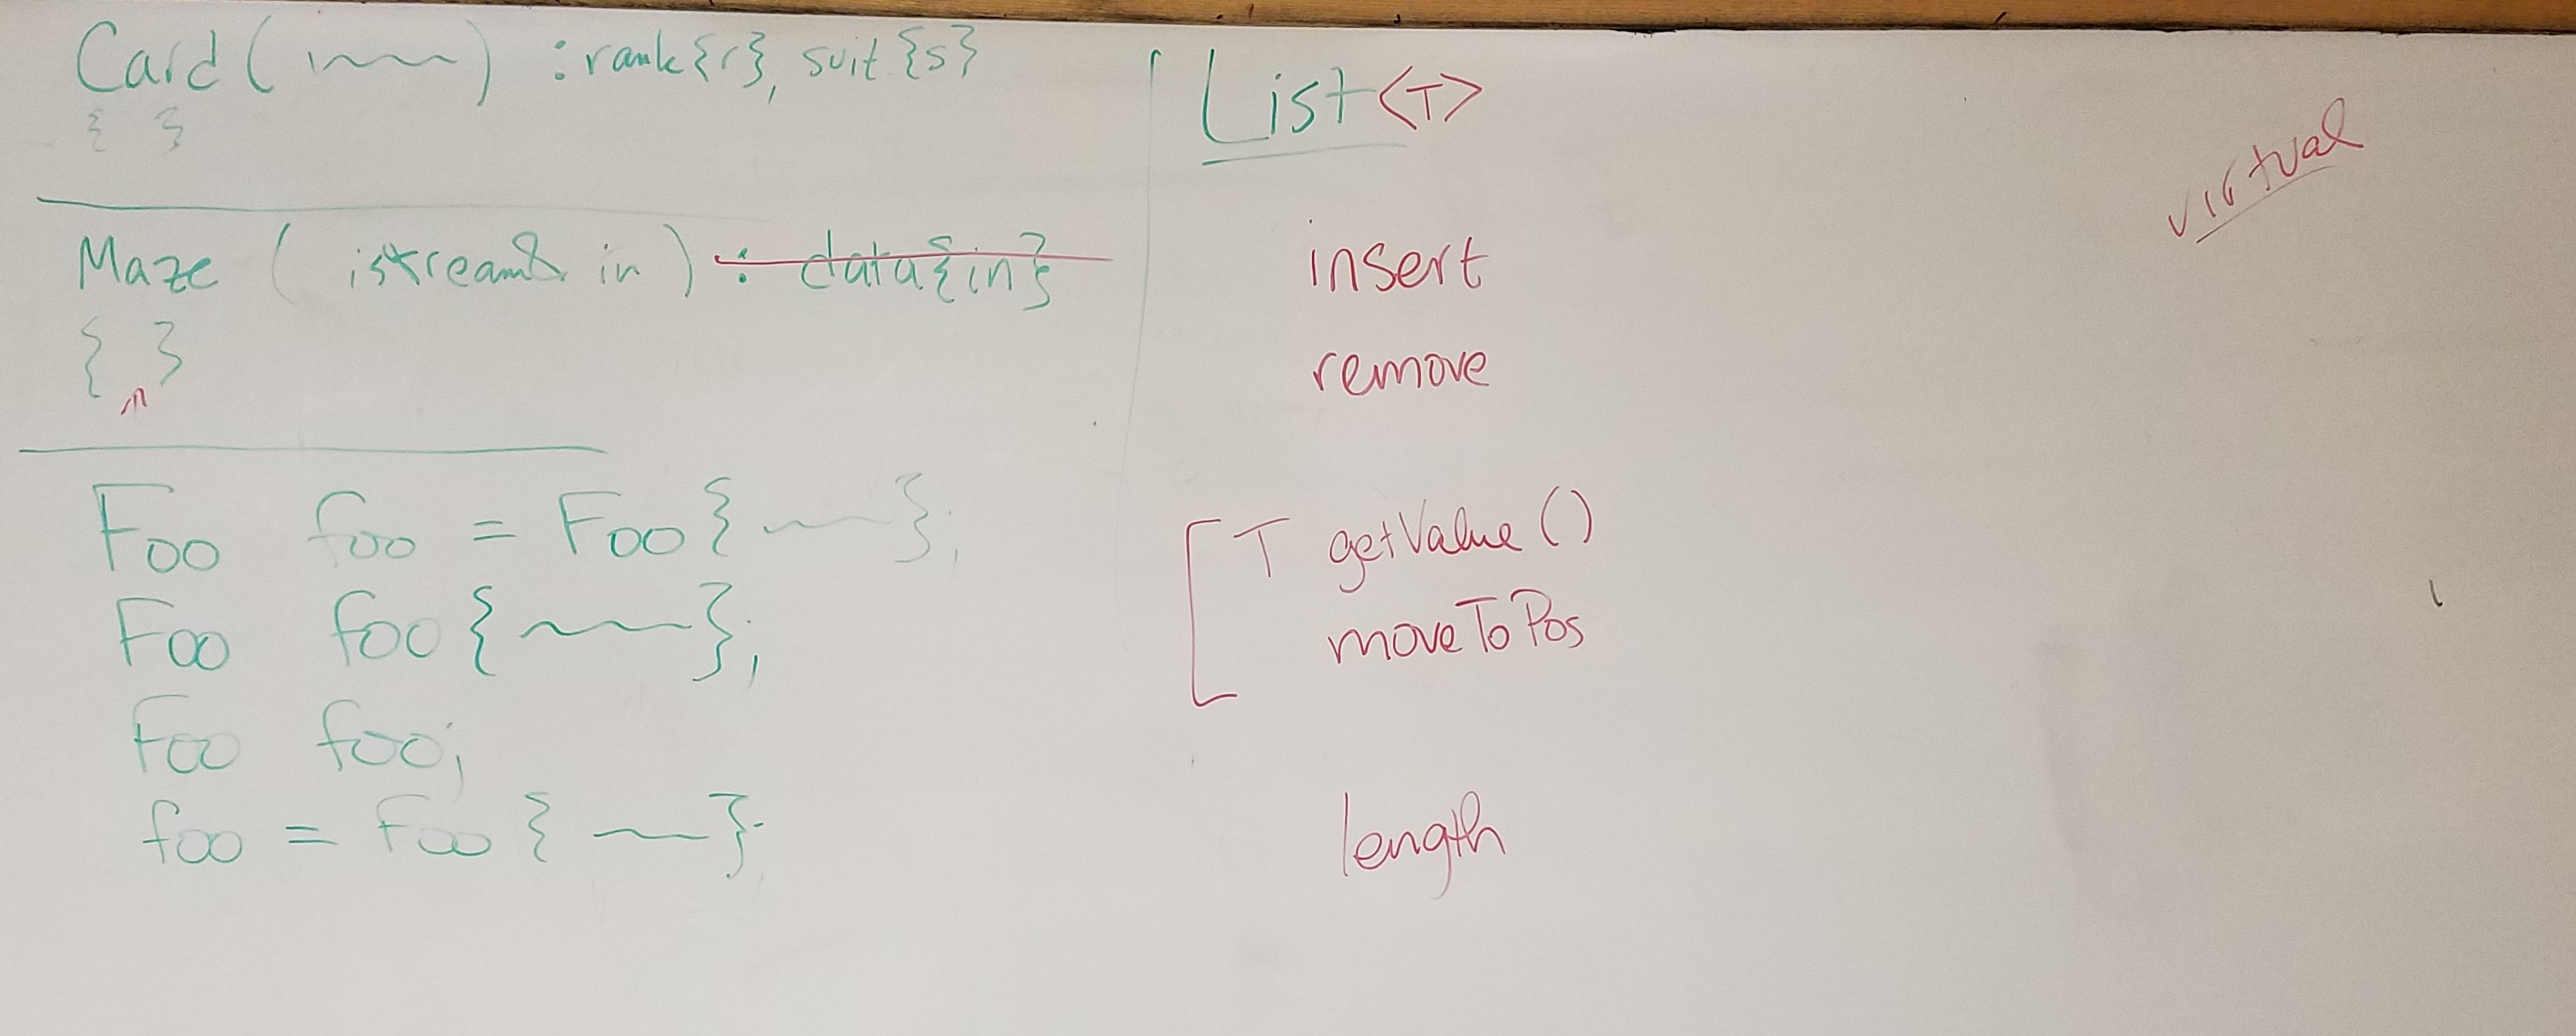 Card ( ) : rank{r}, suit{s}
{ }
Maze ( istream& in ) : data{in}
{ }
Foo foo = Foo{ };
Foo foo{ };
Foo foo;
foo = Foo{ };
List<T>
insert
remove
T getValue()
moveToPos
length
virtual